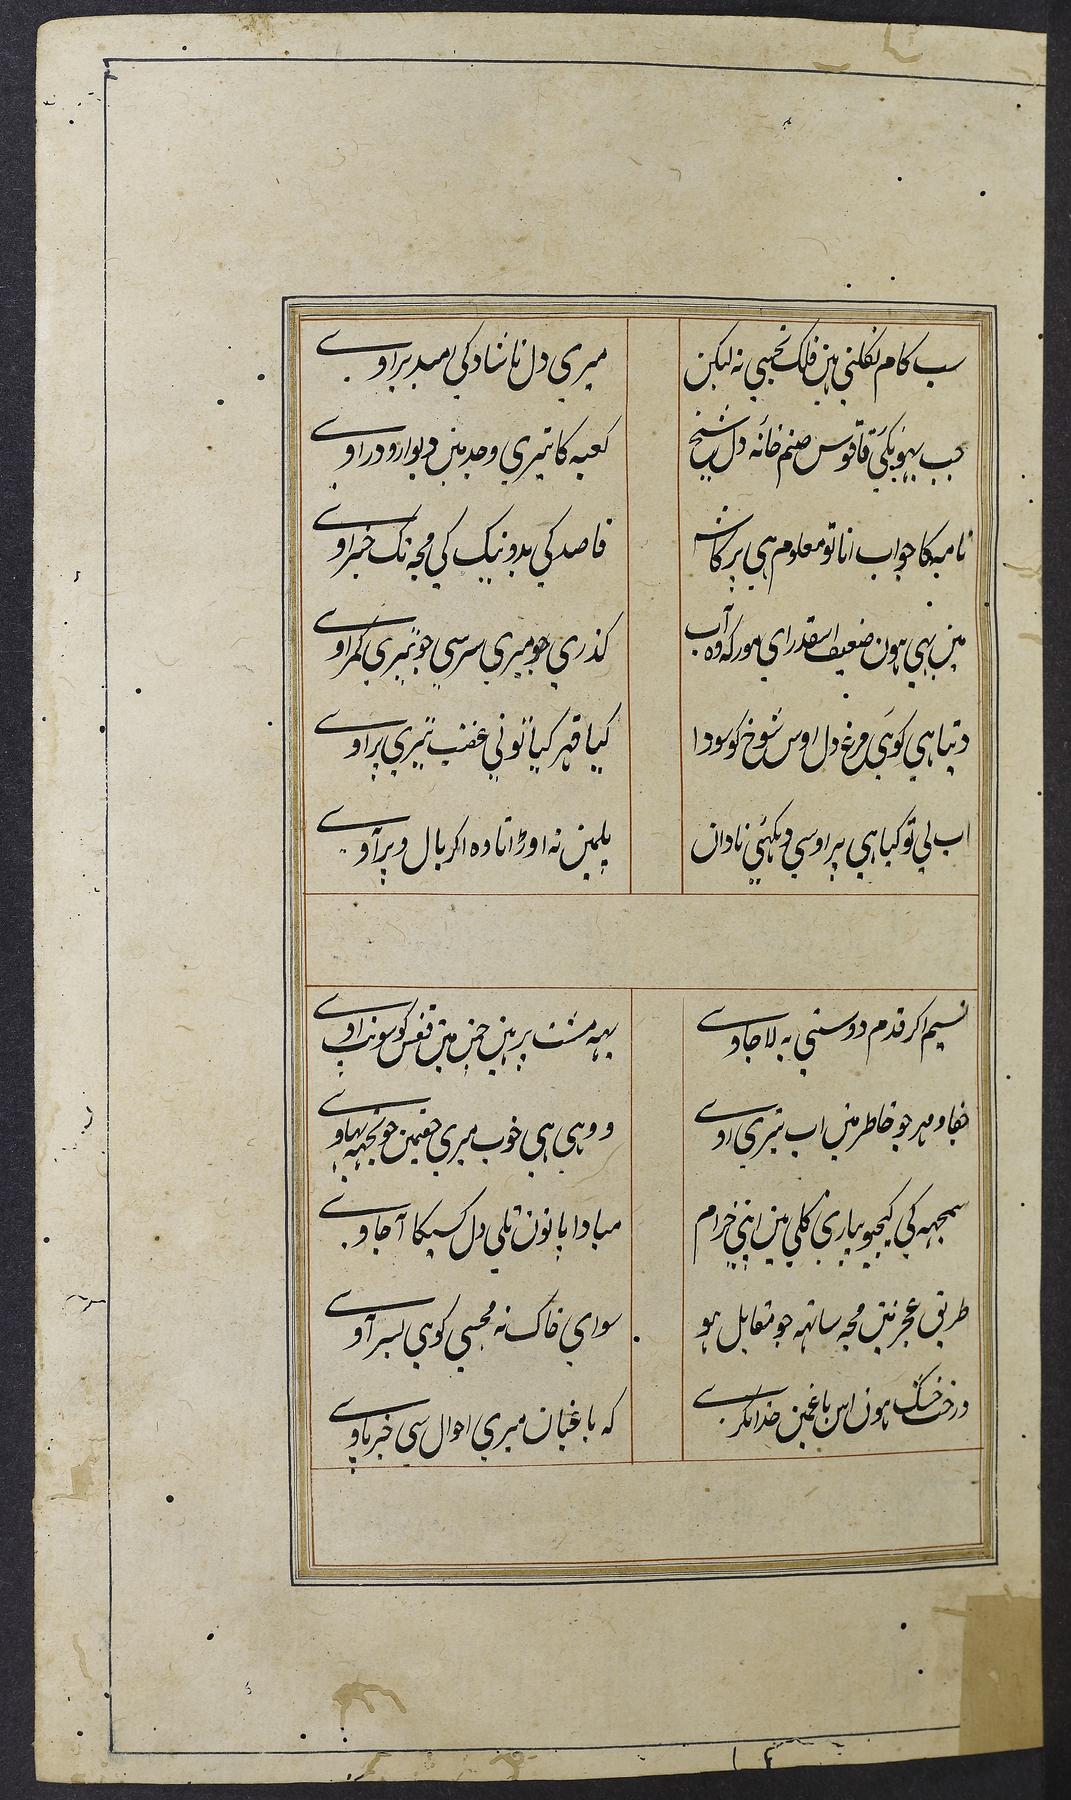 سب کام نکلتی ہین فلک تجہسی نہ لیکن
میری دل ناشاد کی امید بر اوی
جب پہونکی ناقوس صنم خانہ دل شیخ
کعبہ کا تیری وجد مین دیوار و در اوی
نامہ کا جواب انا تو معلوم ہی پر کاش
قاصد کی بد و نیک کی مجہ تک خبر اوی
مین بہی ہون ضعیف اسقدر ای مور کہ وہ آب
گذری جو میری سر سی جو تیری کمر اوی
دیتا ہی کوئی مرغ دل اوس شوخ کو سودا
کیا قہر کیا تونی غضب تیری پر اوی
اب لی تو کیا ہی پر اوسی دیکہئی نادان
پلمین نہ اوڑاتا وہ اکر بال و پر آوی
نسیم اکر قدم دوستی بہ لا جاوی
یہہ مشت پر ہین چمن مین قفس کو سونپ اوی
جفا و مہر جو خاطر مین اب تیری اوی
و وہی ہی خوب میری حقمین جو تجہہ بہاوی
سمجہہ کی کیجیو پیاری گلی مین اپنی خرام
مبادا پانون تلی دل کسیکا آ جاوی
طریق عجز مین مجہ ساتہہ جو مقابل ہو
سوای خاک نہ مجہسی کوئی بسر آوی
درخت خشک ہون اس باغمین خدا نکری
کہ باغبان میری احوال سی خبر پاوی